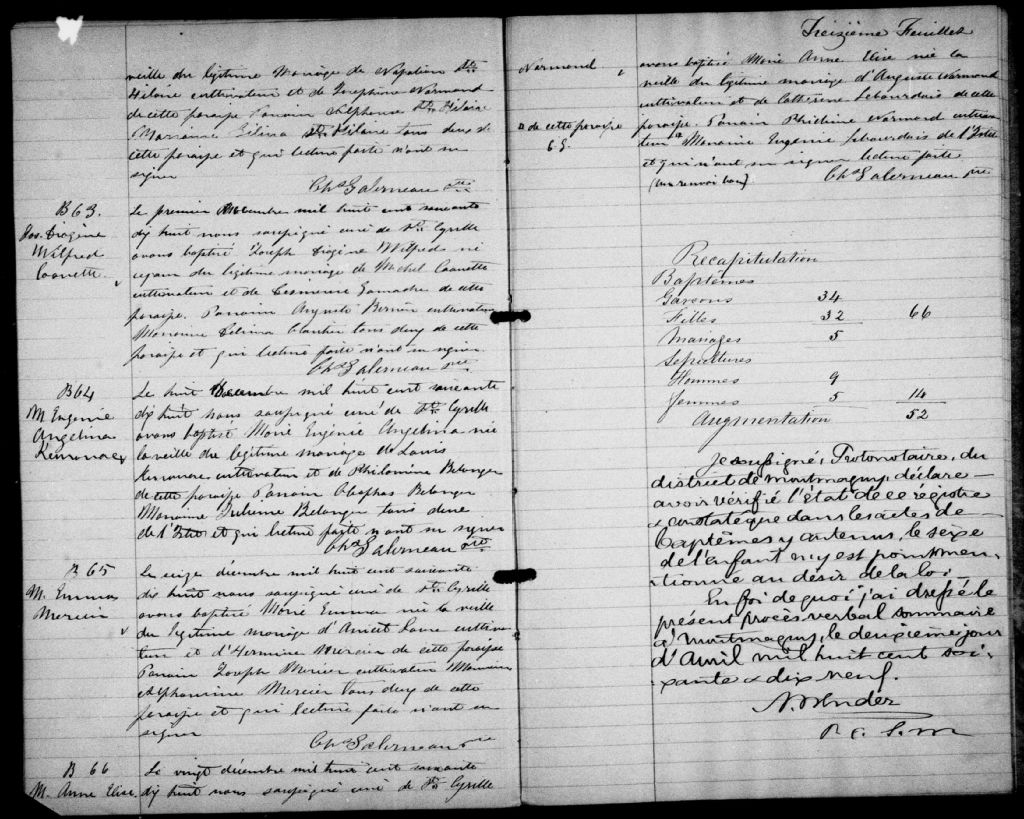 veille du légitime mariage de Napoléon St
Hilaire cultivateur et de Joséphine Normand
de cette paroisse Parrain Alphonse St Hilaire
Marraine Gélina St Hilaire tous deux de
cette paroisse et qui lecture faite n'ont su
signer
Chs Galerneau Ptre
B 63.
Jos. Diogène
Wilfred
Caouette
Le premier décembre mil huit cent soixante
dix huit nous soussigné curé de St Cyrille
avons baptisé Joseph Diogène Wilfred né
du légitime mariage de Michel Caouette
cultivateur et de Gamache de cette
paroisse. Parrain Auguste Bernier cultivateur
Marraine Célina Cloutier tous deux de cette
paroisse et qui lecture faite n'ont su signer
Chs Galerneau Ptre
B 64
M. Eugénie
Angelina
Le huit Décembre mil huit cent soixante
dix huit nous soussigné curé de St Cyrille
avons baptisé Marie Eugénie Angelina née
la veille du légitime mariage de Louis
cultivateur et de Philomène Belanger
de cette paroisse Parrain Cléophas Belanger
Marraine Belanger tous deux
de l'Islet et qui lecture faite n'ont su signer
Chs Galerneau Ptre
B 65
M. Emma
Le seize décembre mil huit cent soixante
dix huit nous soussigné curé de St Cyrille
avons baptisé Marie Emma née la veille
du légitime mariage d'Anicet cultiva-
teur et d'Hermine Mercier de cette paroisse
Parrain Joseph Mercier cultivateur Marraine
Alphonsine Mercier tous deux de cette
paroisse et qui lecture faite n'ont su
signer
Chs Galerneau Ptre
B 66
M. Anne Elise
Le vingt décembre mil huit cent soixante
dix huit nous soussigné curé de St Cyrille
Treizième Feuillet
Normand
avons baptisé Marie Anne Elise née la
veille du légitime mariage d'Auguste Normand
cultivateur et de Catherine Lebourdais de cette
paroisse. Parrain Normand cultiva-
teur Marraine Eugénie Lebourdais de l'Islet
et qui n'ont su signer lecture faite
(un renvoi bon)
Chs Galerneau Ptre
de cette paroisse
C G.
Récapitulation
Baptêmes
Garçons 34
Filles 32 66
Mariages 5
Sépultures
Hommes 9
Femmes 5 14
Augmentation 52
Je soussigné, Protonotaire, du
district de Montmagny, déclare
avoir vérifié l'état de ce registre
& constaté que dans les actes de
baptêmes y contenus, le sexe
de l'enfant n'y est point men-
tionné au désir de la loi.
En foi de quoi j'ai dressé le
présent procès verbal sommaire
à Montmagny, le deuxième jour
d'Avril mil huit cent soi-
xante & dix neuf.
A. Bender
P. C. S. M